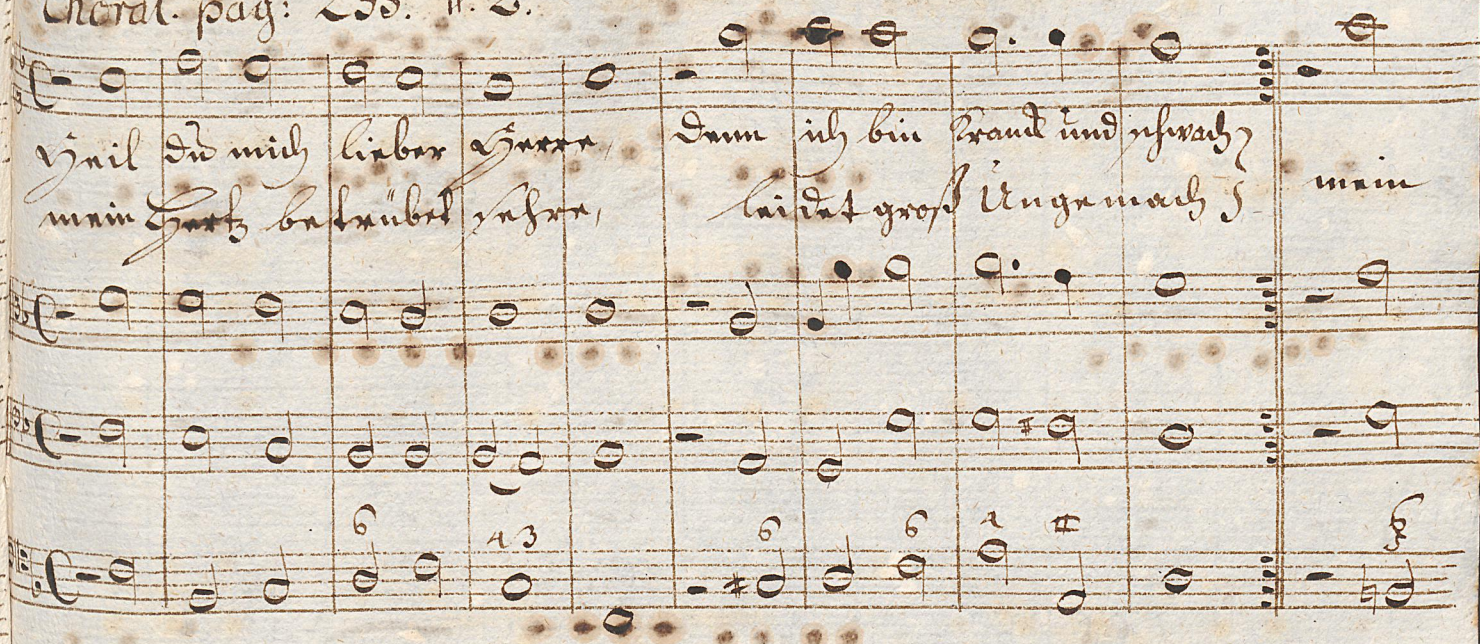 Choral. pag: 253. #. 2.
Heil du mich lieber Herre, denn ich bin kranck und schwach,
mein Hertz betrübet sehre, leidet groß Ungemach mein
6 4 3 6 6 4 #
6